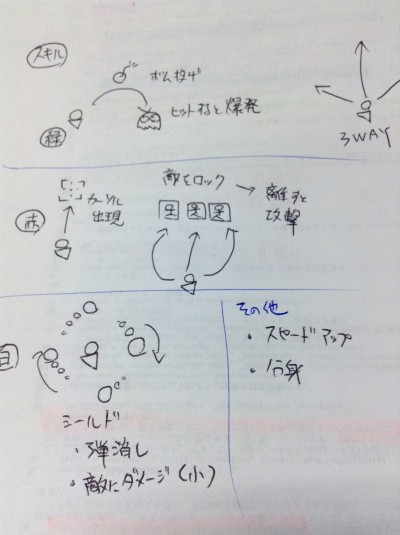 スキル
ボム投げ
緑
ヒットすると爆発
3WAY
赤
カーソル
出現
敵をロック
離すと
攻撃
シールド
・弾消し
・敵にダメージ(小)
その他
・スピードアップ
・分身